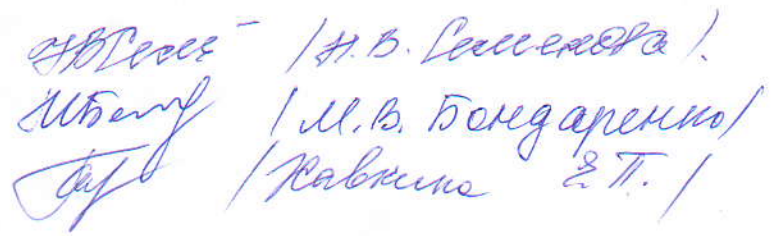 /Н.В. Семенова/.
/М.В. Бондаренко/
/Хавкина Е.П./